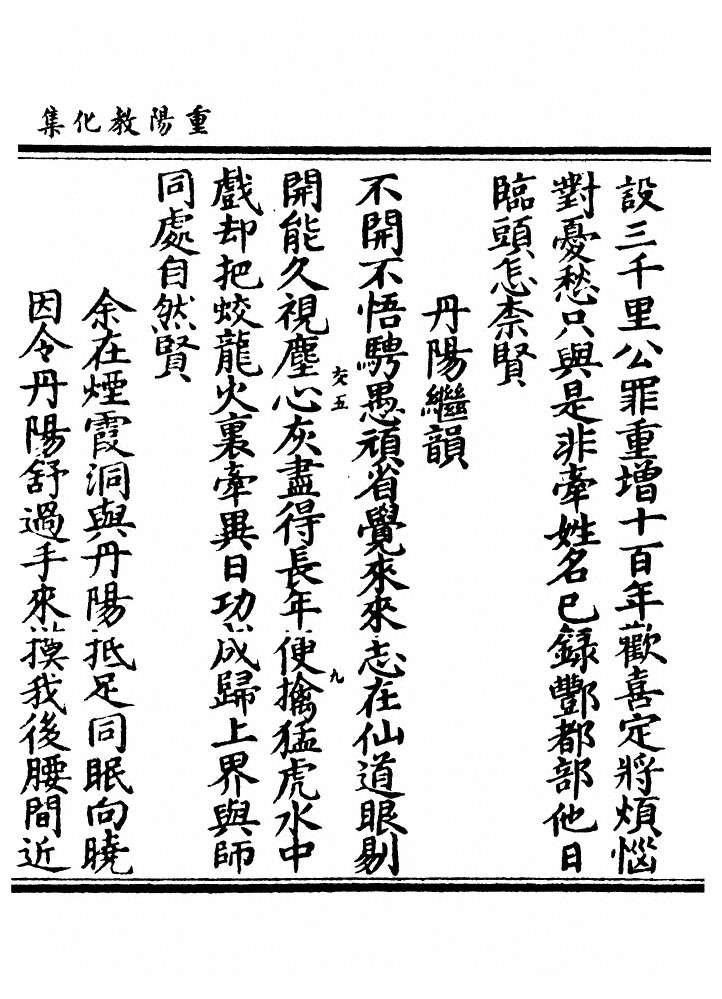 重陽教化集
設三千里公罪重增十百年歡喜定將煩惱
對憂愁只與是非牽姓名已録酆都部他日
臨頭怎柰賢
丹陽繼韻
不開不悟騁愚頑省覺來來志在仙道眼剔
開能久視塵心灰盡得長年便擒猛虎水中
交五
九
戲却把蛟龍火裏牽異日功成歸上界與師
同處自然賢
余在煙霞洞與丹陽抵足同眠向曉
因令丹陽舒過手來摸我後腰間近